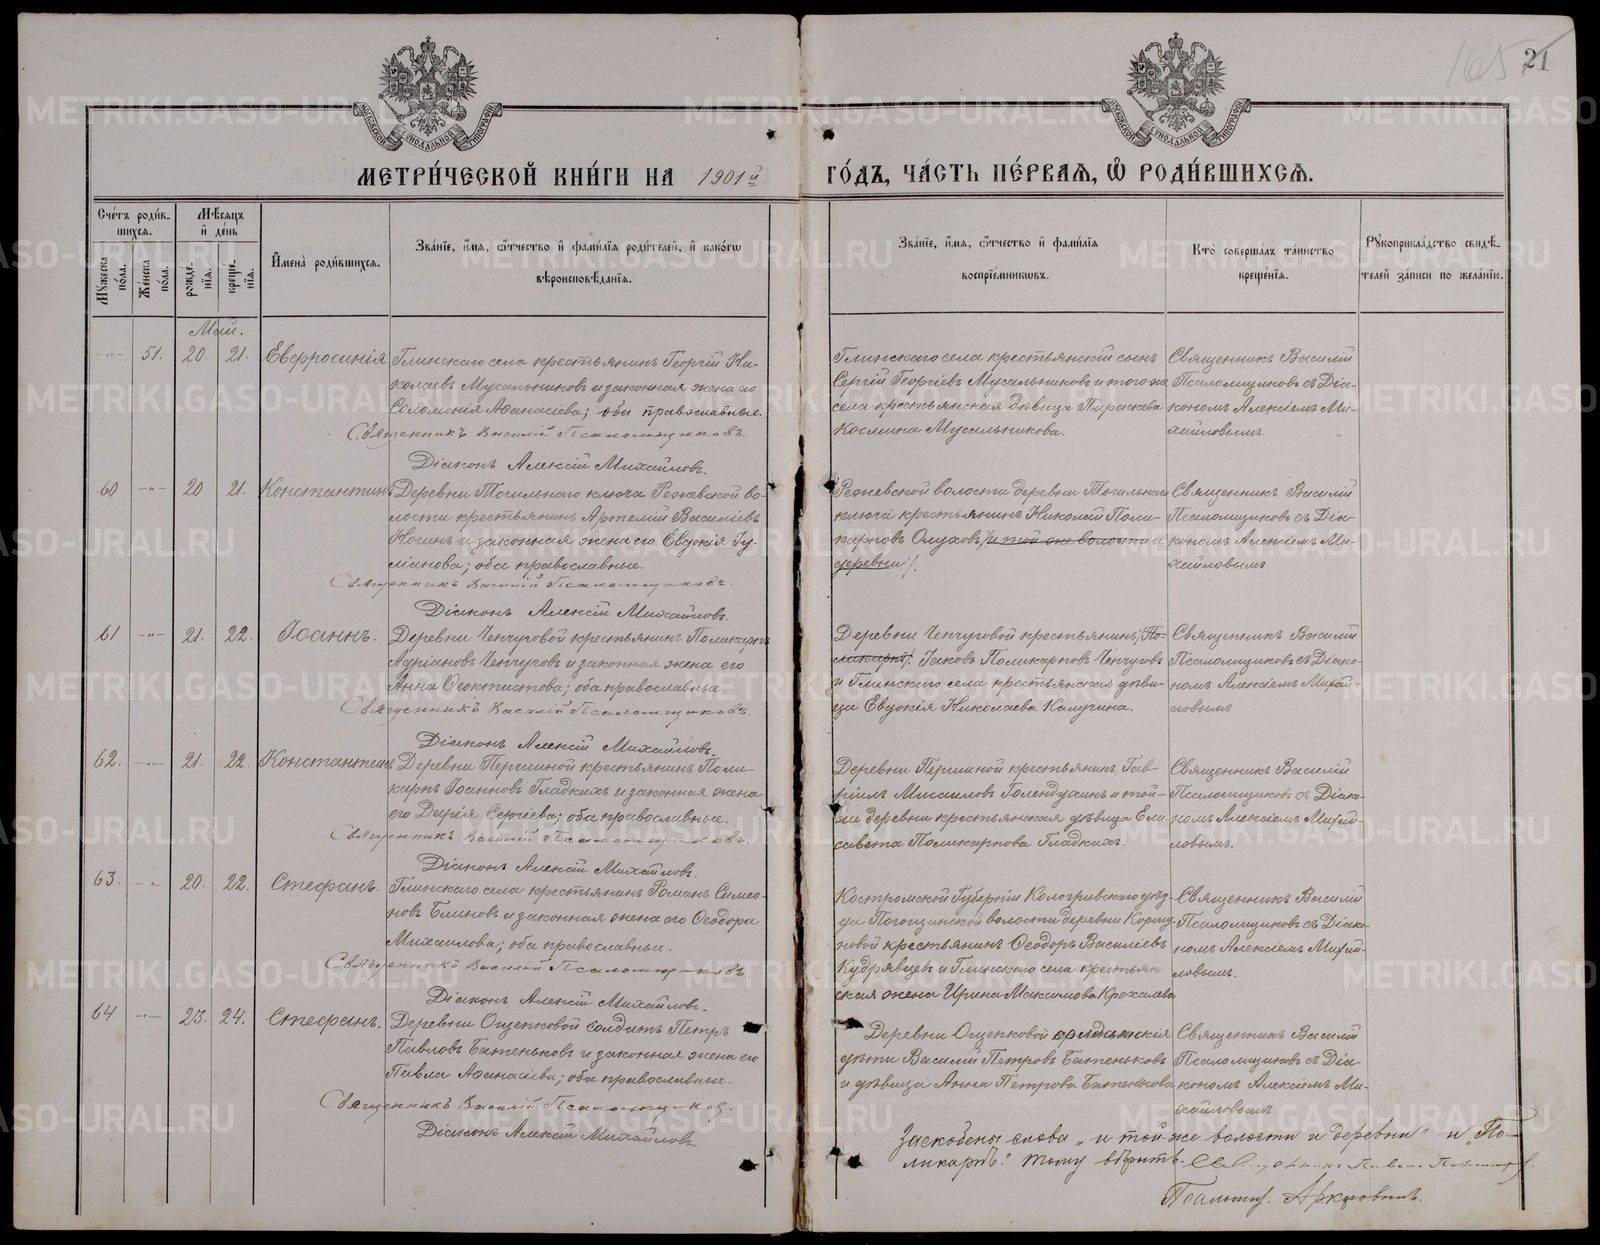 165 21
МЕТРИ́ЧЕСКОЙ КНИ́ГИ НА 1901й ГО́ДЪ, ЧА́СТЬ ПЕ́РВАѦ, Ѡ РОДИ́ВШИХСѦ.
Сче́тъ роди́в-
шихсѧ.
Мꙋ́жеска по́ла.
Же́нска по́ла.
Мѣ́сѧцъ и де́нь
рожде́-
нїѧ.
креще́-
нїѧ.
И́мена̀ роди́вшихсѧ.
Зва́нїе, и́мѧ, ѻ́тчество и фами́лїѧ роди́телей, и како́гѡ
вѣроисповѣ́данїѧ.
Зва́нїе, и́мѧ, ѻ́тчество и фами́лїѧ
воспрїе́мникѡвъ.
Кто̀ соверша́лъ та́инство
креще́нїѧ.
Рꙋкоприкла́дство свидѣ́-
телей за́писи по жела́нїю.
Май.
-"- 51. 20. 21. Евфросинія
Глинскаго села крестьянинъ Георгій Ни-
колаевъ Мусальниковъ и законная жена его
Соломонія Аѳанасіева; оба православные.
Священникъ Василій Псаломщиковъ.
Діаконъ Алексій Михайловъ.
Глинскаго села крестьянскій сынъ
Сергій Георгіевъ Мусальниковъ и того же
села крестьянская дѣвица Параскева
Космина Мусальникова.
Священникъ Василій
Псаломщиковъ съ Діа-
кономъ Алексіемъ Ми-
хайловымъ.
60 -"- 20 21. Константинъ
Деревни Точильнаго ключа Режевской во-
лости крестьянинъ Артемій Василіевъ
и законная жена его Евдокія Іу-
ліанова; оба православные.
Священникъ Василій Псаломщиковъ.
Діаконъ Алексій Михайловъ.
Режевской волости деревни Точильнаго
ключа крестьянинъ Николай Поли-
карповъ Олуховъ (и той же волости и
деревни).
Священникъ Василій
Псаломщиковъ съ Діа-
кономъ Алексіемъ Ми-
хайловымъ
61 -"- 21. 22. Іоаннъ.
Деревни Чепчуговой крестьянинъ Поликарпъ
Адріановъ Чепчуговъ и законная жена его
Анна Ѳеоктистова; оба православные.
Священникъ Василій Псаломщиковъ.
Діаконъ Алексій Михайловъ.
Деревни Чепчуговой крестьянинъ (По-
ликарпъ) Іаковъ Поликарповъ Чепчуговъ
и Глинскаго села крестьянская дѣви-
ца Евдокія Николаева Калугина.
Священникъ Василій
Псаломщиковъ съ Діако-
номъ Алексіемъ Михай-
ловымъ.
62. -"- 21. 22. Константинъ
Деревни Першиной крестьянинъ Поли-
карпъ Іоанновъ Гладкихъ и законная жена
его Дарія Сергіева; оба православные.
Священникъ Василій Псаломщиковъ.
Діаконъ Алексій Михайловъ.
Деревни Першиной крестьянинъ Гав-
ріилъ Мисаиловъ Голендухинъ и той-
же деревни крестьянская дѣвица Ели-
савета Поликарпова Гладкихъ.
Священникъ Василій
Псаломщиковъ съ Діако-
номъ Алексіемъ Михай-
ловымъ.
63. -"- 20. 22. Стефанъ.
Глинскаго села крестьянинъ Романъ Симео-
новъ Блиновъ и законная жена его Ѳеодора
Михаилова; оба православные.
Священникъ Василій Псаломщиковъ.
Діаконъ Алексій Михайловъ.
Костромской Губерніи Кологривскаго уѣз-
да волости деревни
новой крестьянинъ Ѳеодоръ Василіевъ
Кудрявцевъ и Глинскаго села крестьян
ская жена Ирина Максимова Крохалева
Священникъ Василій
Псаломщиковъ съ Діако-
номъ Алексіемъ Михай-
ловымъ.
64 -"- 23. 24. Стефанъ.
Деревни Ощепковой солдатъ Петръ
Павловъ Батеньковъ и законная жена его
Павла Аѳанасіева; оба православные.
Священникъ Василій Псаломщиковъ.
Діаконъ Алексій Михайловъ
Деревни Ощепковой солдатскія
дѣти Василій Петровъ Батеньковъ
и дѣвица Анна Петрова Батенькова
Священникъ Василій
Псаломщиковъ съ Діа-
кономъ Алексіемъ Ми-
хайловымъ.
Заскоблены слова „и той же волости и деревни" и „По-
ликарпъ." тому вѣрить.
METRIKI.GASO-URAL.RU